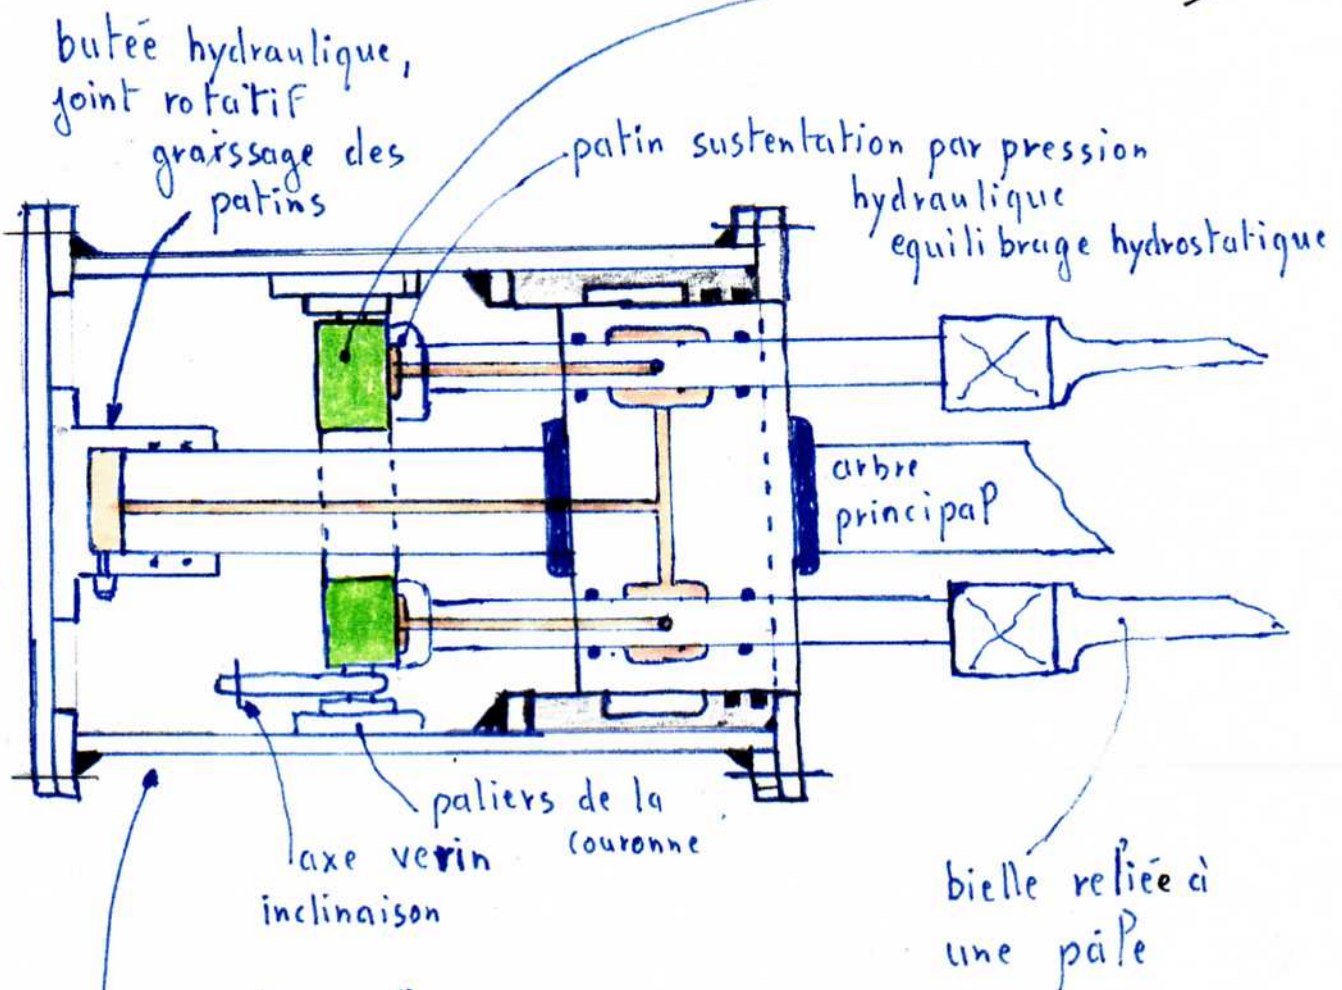 butée hydraulique,
joint rotatif
graissage des
patins
patin sustentation par pression
hydraulique
equilibrage hydrostatique
arbre
principal
paliers de la
couronne
axe verin
inclinaison
bielle reliée à
une pâle